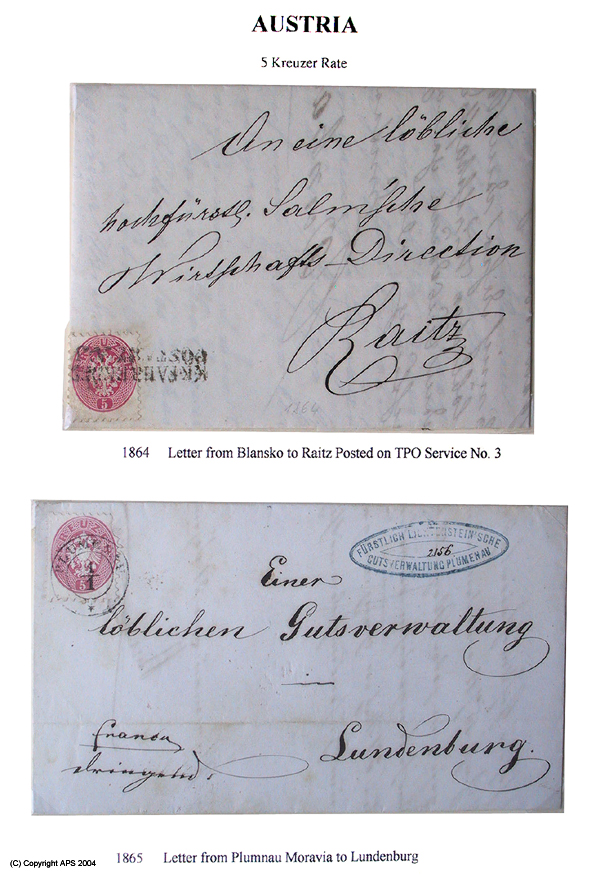 AUSTRIA
5 Kreuzer Rate
An eine löbliche
hochfürstl. Salm'sche
Wirtschafts-Direction
Raitz
K.K. FAHRENDES
POSTAMT
5
1864
1864 Letter from Blansko to Raitz Posted on TPO Service No. 3
KREUZER
5
FÜRSTLICH LIECHTENSTEIN'SCHE
2156
GUTSVERWALTUNG PLUMENAU
Einer
löblichen Gutsverwaltung
Lundenburg.
franco
dringend
1865 Letter from Plumnau Moravia to Lundenburg
(C) Copyright APS 2004